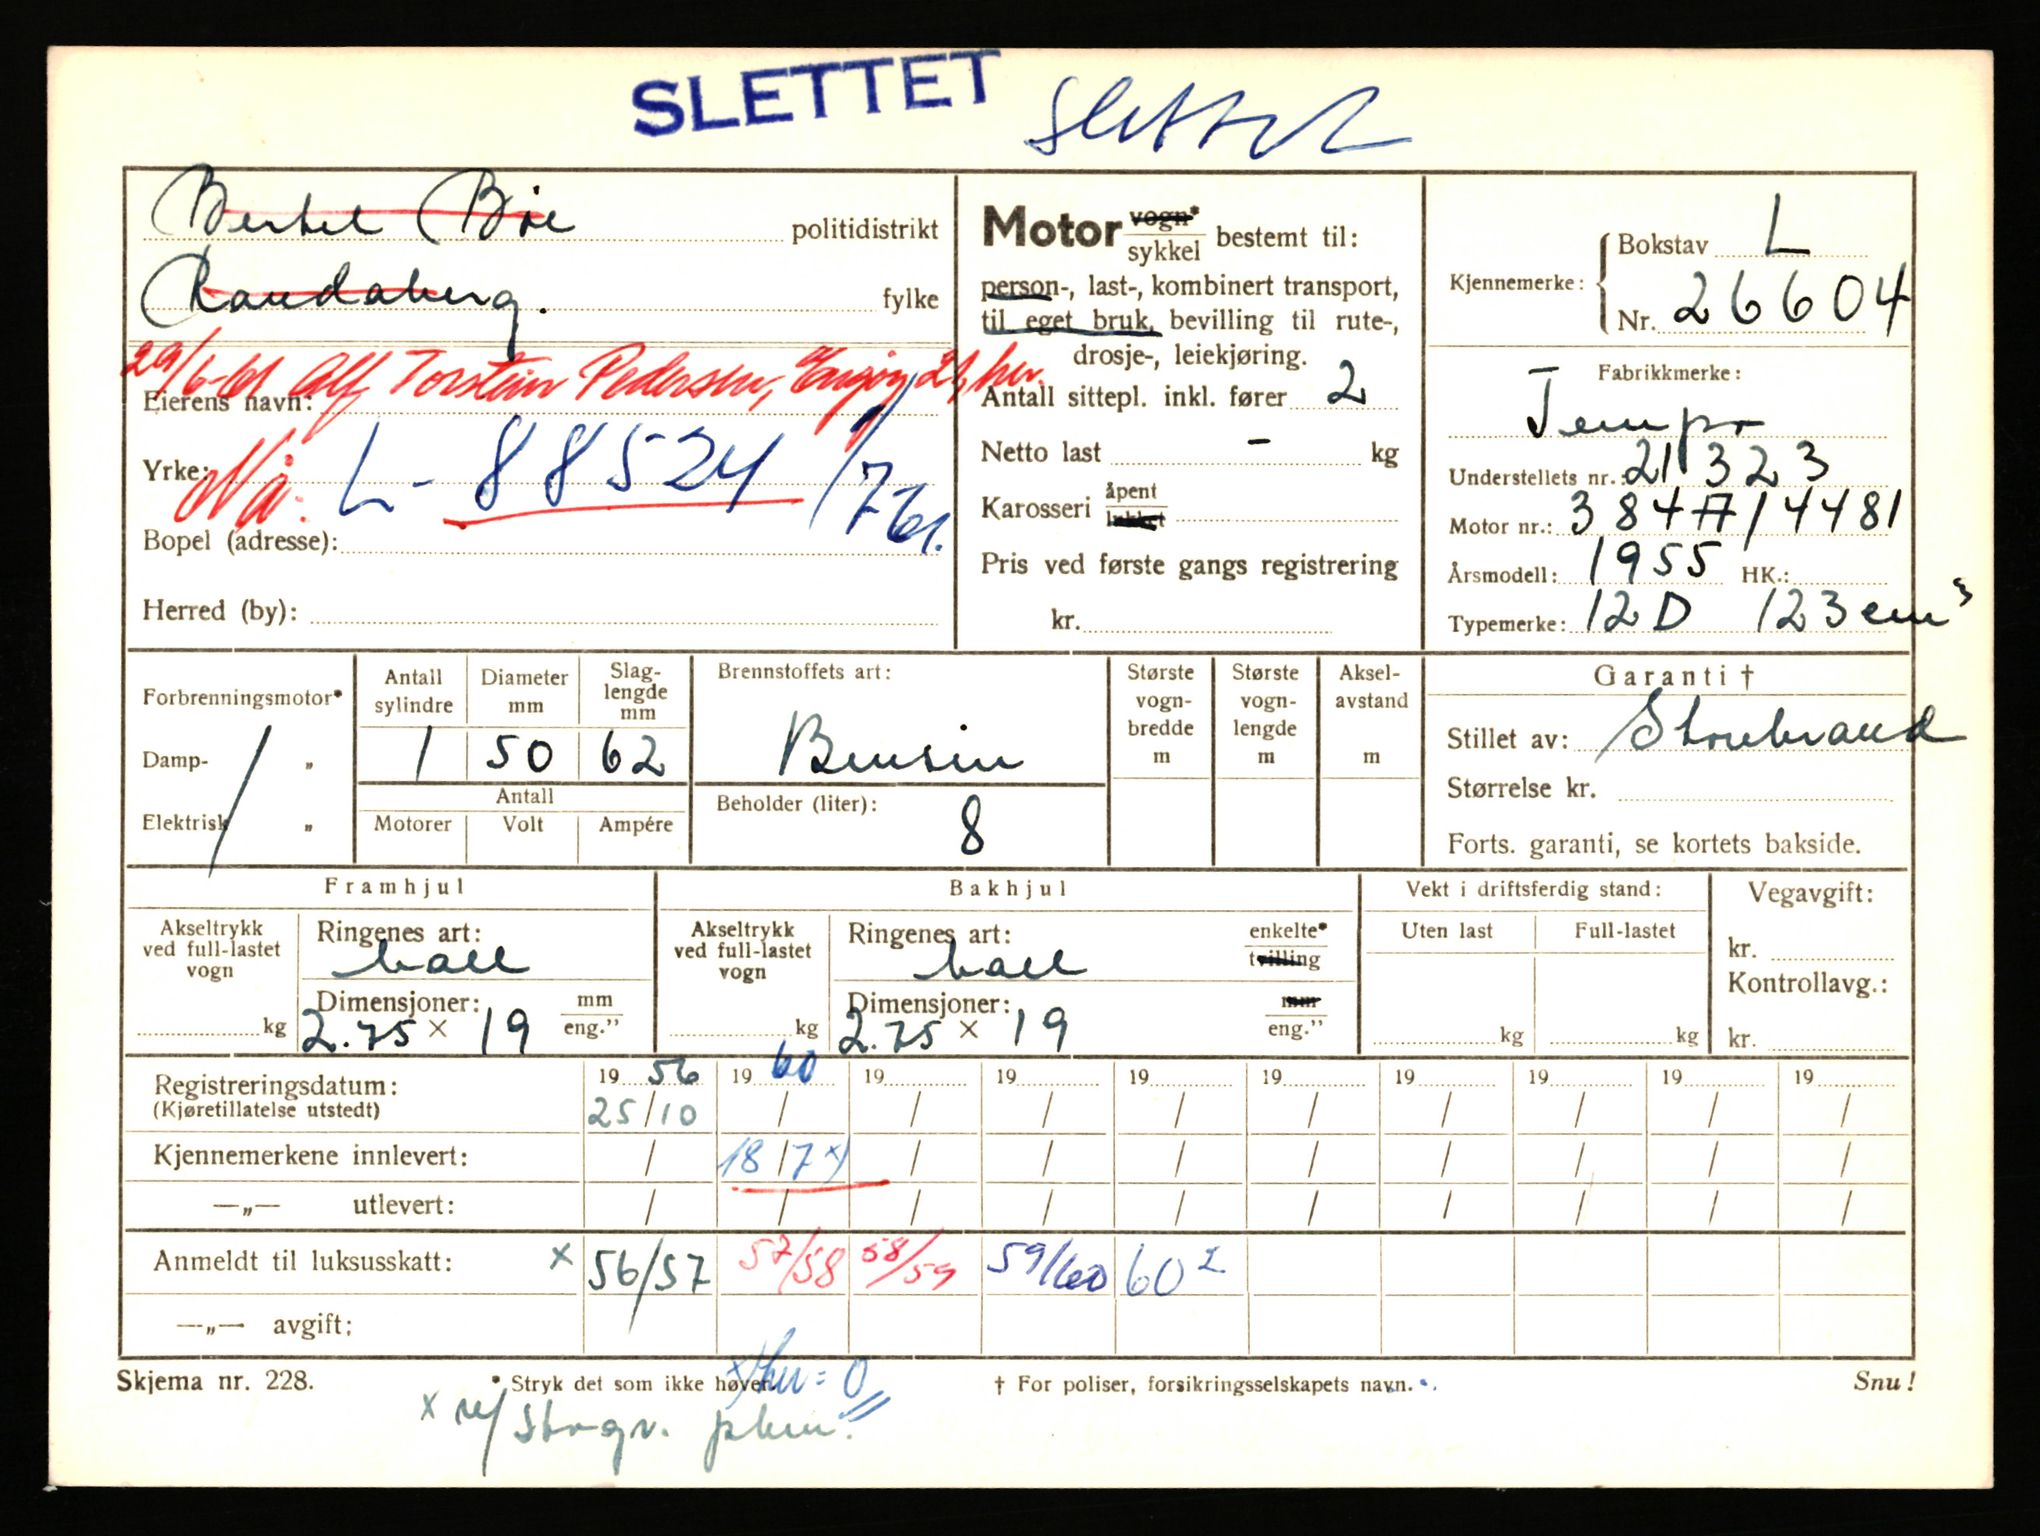 SLETTET Slettet
Bertel Bøe politidistrikt
Randaberg. fylke
29/6-61 Alf Torstein Pedersen, Engøy 21, her.
Eierens navn:
Yrke: Nå: L-88524 1/7 61.
Bopel (adresse):
Herred (by):
Motor vogn*
sykkel bestemt til:
person-, last-, kombinert transport,
til eget bruk, bevilling til rute-,
drosje-, leiekjøring.
Antall sittepl. inkl. fører 2
Netto last - kg
Karosseri åpent
lukket
Pris ved første gangs registrering
kr.
Kjennemerke: Bokstav L
Nr. 26604
Fabrikkmerke:
Tempo
Understellets nr.: 21323
Motor nr.: 384A/14481
Årsmodell: 1955 HK.:
Typemerke: 12D 123 cm³
Forbrenningsmotor*
Damp- „
Elektrisk „
Antall sylindre Diameter mm Slaglengde mm
1 50 62
Antall
Motorer Volt Ampére
Brennstoffets art:
Bensin
Beholder (liter): 8
Største vognbredde m Største vognlengde m Akselavstand m
Garanti †
Stillet av: Storebrand
Størrelse kr.
Forts. garanti, se kortets bakside.
Framhjul
Akseltrykk ved full-lastet vogn kg
Ringenes art: ball
Dimensjoner: mm
2.75 × 19 eng.”
Bakhjul
Akseltrykk ved full-lastet vogn kg
Ringenes art: ball enkelte*
tvilling
Dimensjoner: mm
2.75 × 19 eng.”
Vekt i driftsferdig stand:
Uten last Full-lastet
kg kg
Vegavgift:
kr.
Kontrollavg.:
kr.
Registreringsdatum: 19 56 19 60 19 19 19 19 19 19 19 19
(Kjøretillatelse utstedt) 25/10 / / / / / / / / /
Kjennemerkene innlevert: / 18/7 x) / / / / / / / /
—„— utlevert: / / / / / / / / / /
Anmeldt til luksusskatt: x 56/57 57/58 58/59 59/60 60²
—„— avgift:
Skjema nr. 228. * Stryk det som ikke høver. † For poliser, forsikringsselskapets navn. Snu!
= 0